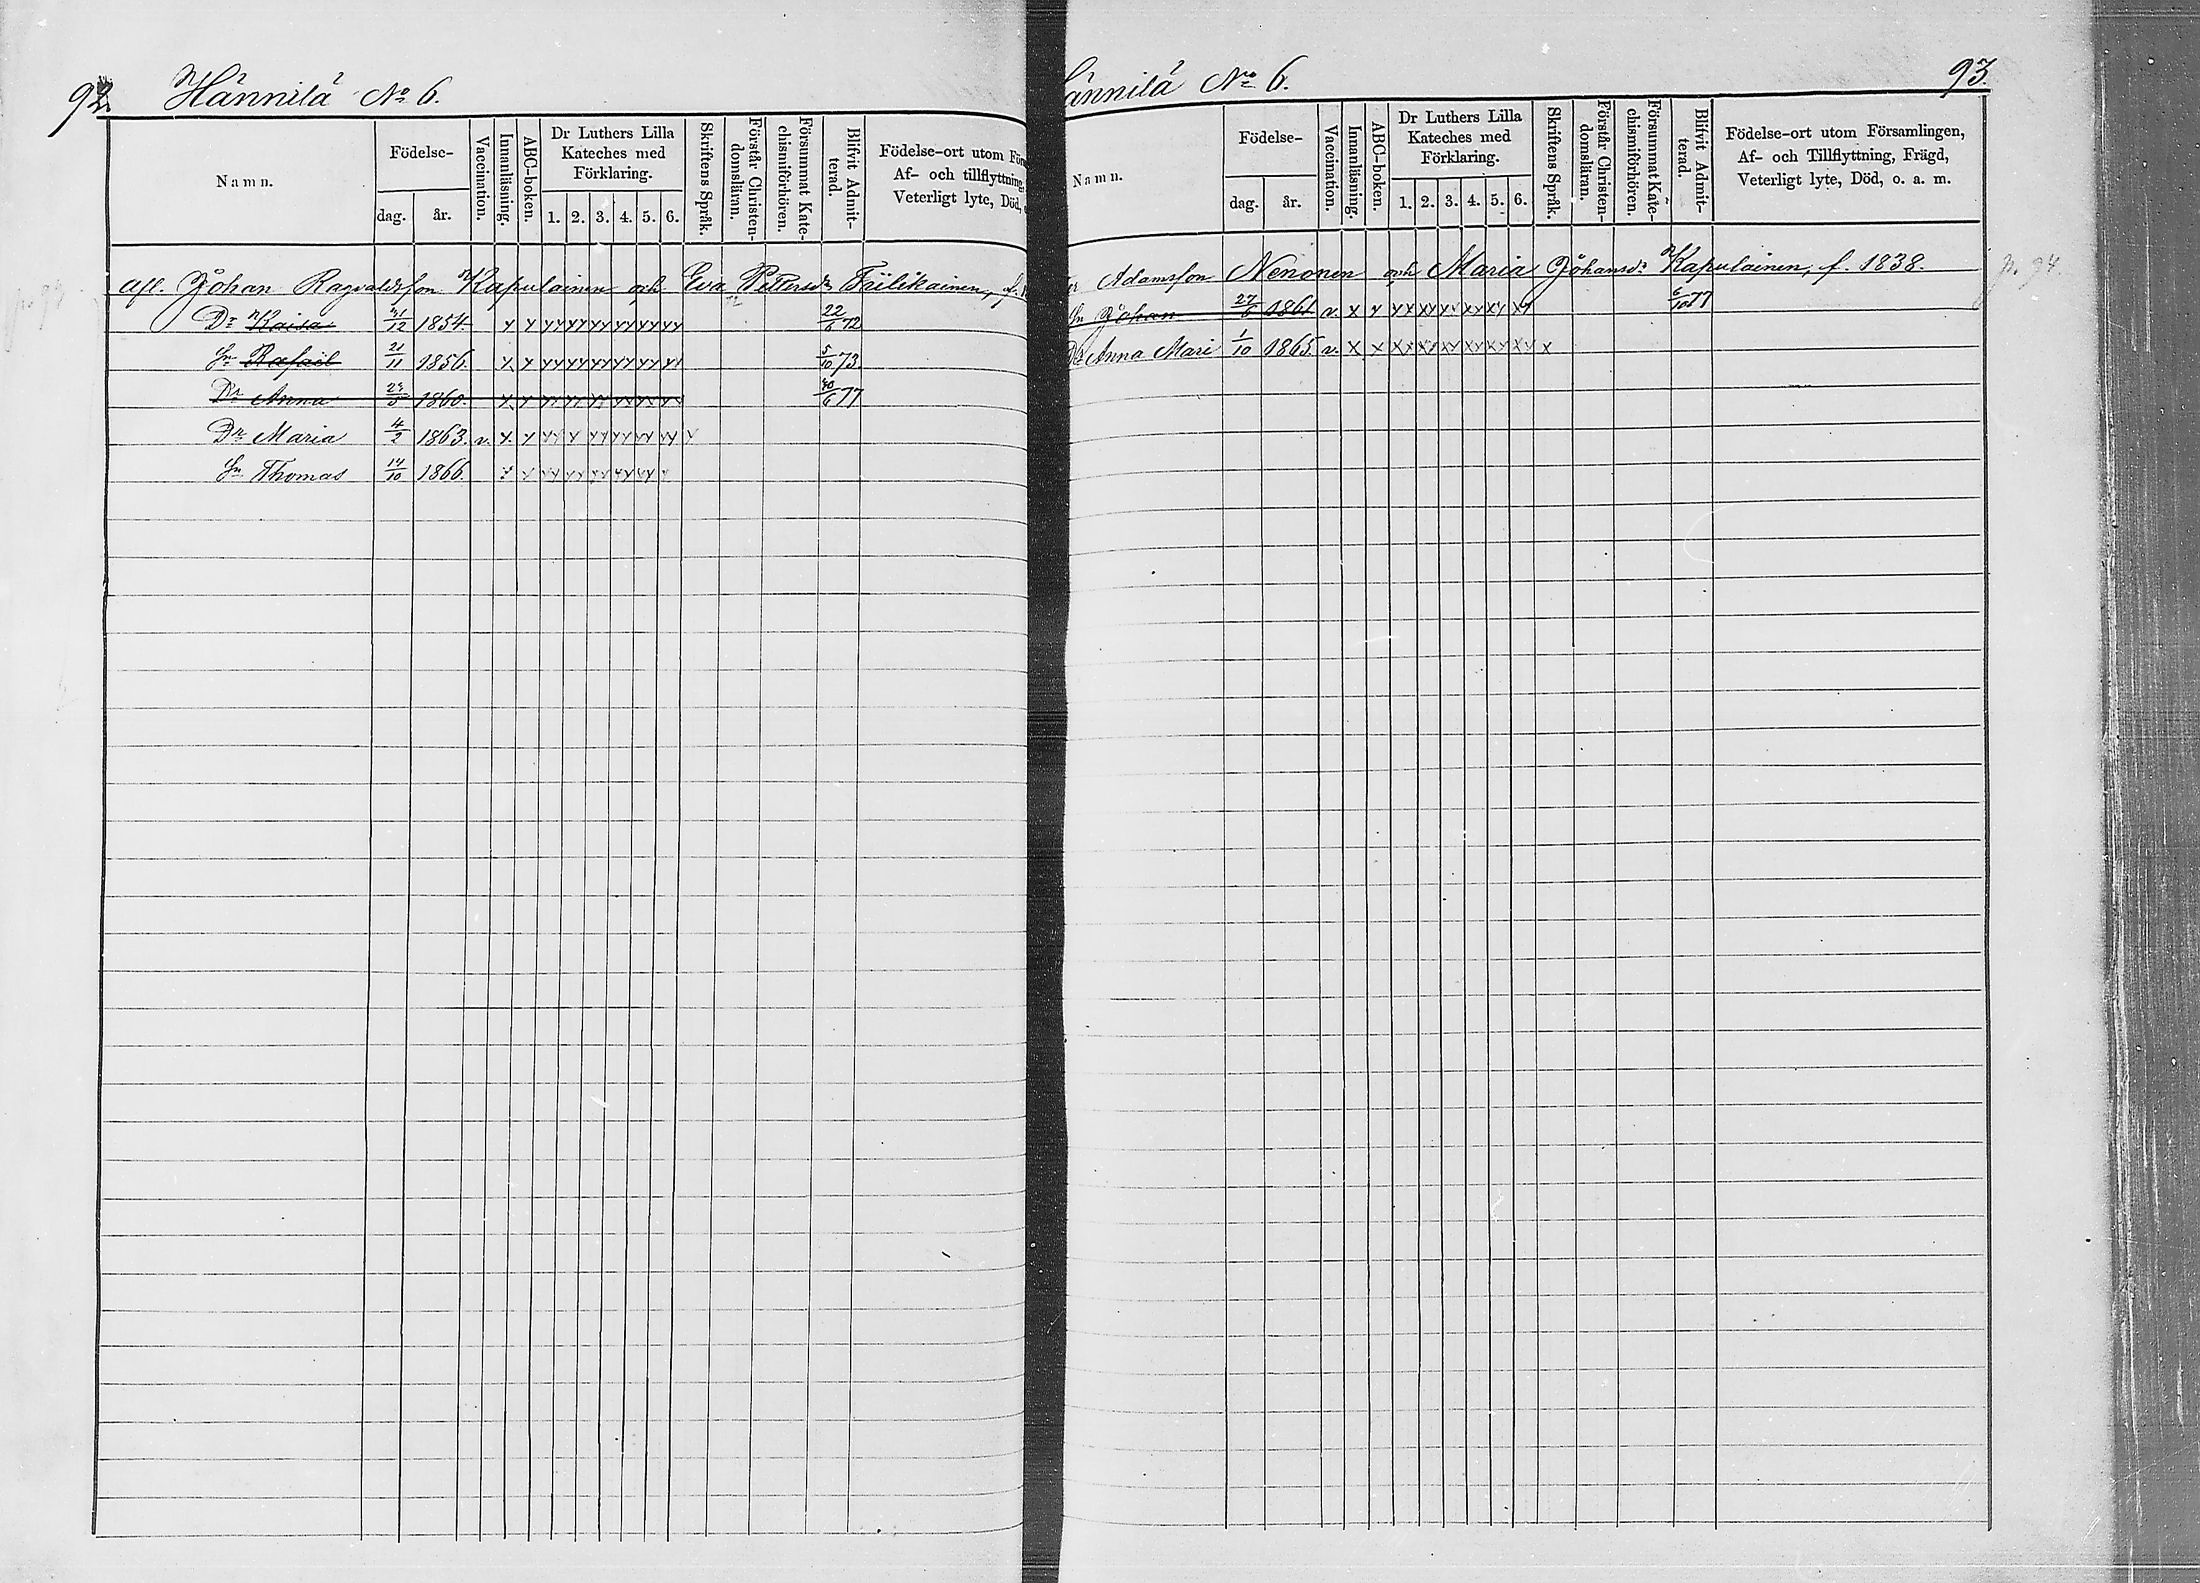 92. Hännilä No 6.
Namn.
Födelse-
dag. år.
Vaccination.
Innanläsning.
ABC-boken.
Dr Luthers Lilla
Kateches med
Förklaring.
1. 2. 3. 4. 5. 6.
Skriftens Språk.
Förstår Christen-
domsläran.
Försummat Kate-
chismiförhören.
Blifvit Admit-
terad.
Födelse-ort utom
Af- och tillflyttning,
Veterligt lyte, Död,
afl. Johan Ragvaldsson Kapulainen och Eva Pettersdr Tiilikainen, f.
Dr Kaisa 31/12 1854. x x xx xx xx xx xx xx 22/6 72
Sn Rafael 21/11 1856. x x xx xx xx xx xx xx 5/10 73.
Dr Anna 1860. x x xx xx xx xx xx xx 30/6 77
Dr Maria 4/2 1863. v. x x xx x xx xx xx xx x
Sn Thomas 14/10 1866. x x xx xx xx xx xx x
ännilä No 6. 93.
Namn.
Födelse-
dag. år.
Vaccination.
Innanläsning.
ABC-boken.
Dr Luthers Lilla
Kateches med
Förklaring.
1. 2. 3. 4. 5. 6.
Skriftens Språk.
Förstår Christen-
domsläran.
Försummat Kate-
chismiförhören.
Blifvit Admit-
terad.
Födelse-ort utom Församlingen,
Af- och Tillflyttning, Frägd,
Veterligt lyte, Död, o. a. m.
Adamsson Nenonen och Maria Johansdr Kapulainen, f. 1838. p. 94
Sn Johan 27/6 1861 v. x x xx xx xx xx xx xx 6/10 77
Dr Anna Mari 1/10 1865. v. x x xx xx xx xx xx xx x